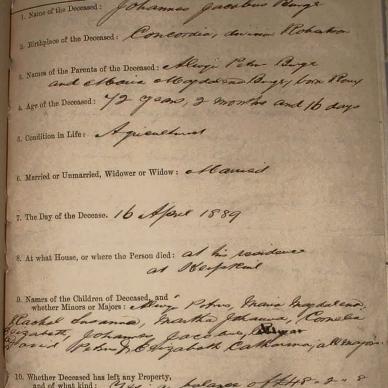 1. Name of the Deceased: Johannes Jacobus Burge
2. Birthplace of the Deceased: Concordia, division
3. Names of the Parents of the Deceased: Petrus Burge
and Maria Magdalena Burge, born Roux
4. Age of the Deceased: 42 years, 2 months and 16 days
5. Condition in Life: Agriculturist
6. Married or Unmarried, Widower or Widow: Married
7. The Day of the Decease. 16 April 1889
8. At what House, or where the Person died: at his residence
at
9. Names of the Children of Deceased, and
whether Minors or Majors: Petrus, Maria Magdalena,
Rachel Susanna, Martha Johanna, Cornelia
Elizabeth, Johannes Jacobus,
David Petrus, Elizabeth Catharina, all majors.
10. Whether Deceased has left any Property,
and of what kind: a balance of £48-2-8